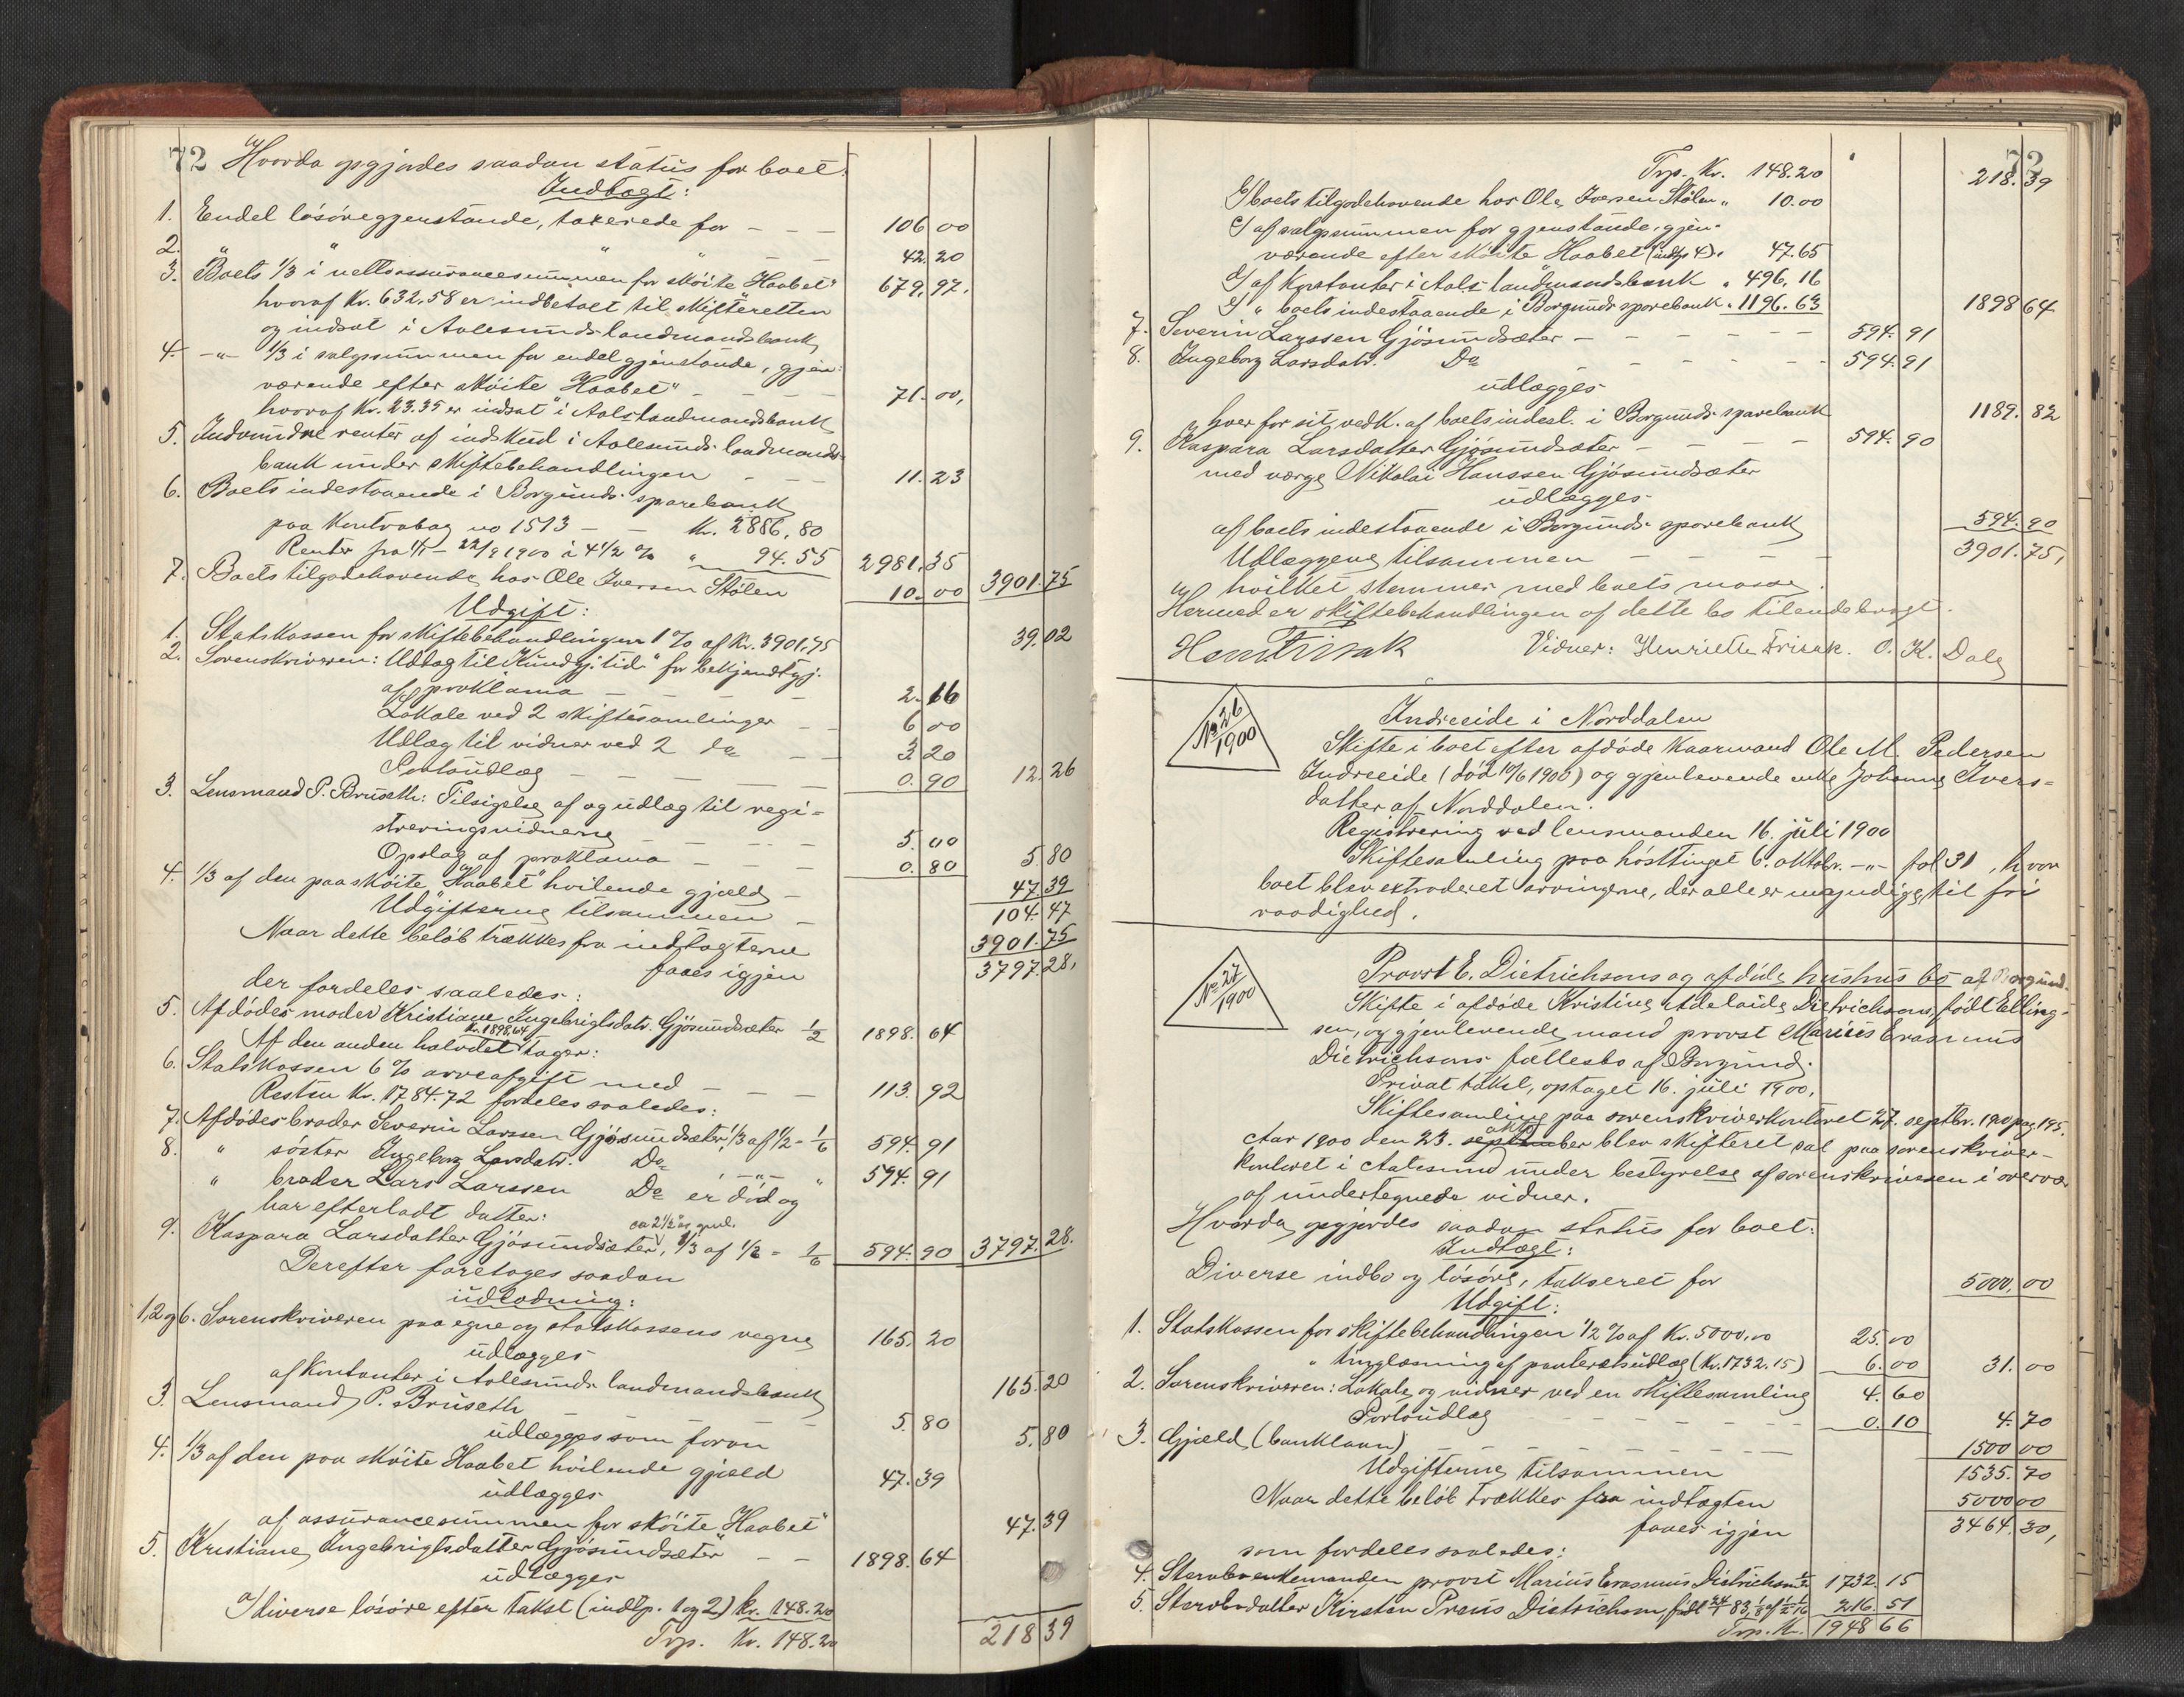 72 Hvorda opgjordes saadan status for boet:
Indtægt:
1. Endel lösöregjenstande, takerede for — — — 106 00
2. " " " — — 42. 20
3. Boets 1/3 i nettoassurancesummen for sköite "Haabet" 679. 97.
hvoraf Kr. 632.58 er indbetalt til skifteretten
og indsat i Aalesunds landmandsbank
4. —"— 1/3 i salgssummen for endel gjenstande, gjen-
værende efter sköite "Haabet" — — — 71. 00,
hvoraf Kr. 23.35 er indsat i Aals landmandsbank
5. Indvundne renter af indskud i Aalesunds landmands-
bank under skiftebehandlingen — — 11. 23
6. Boets indestaaende i Borgunds sparebank
paa Kontrabog no 1513 — — Kr. 2886,80
Renter fra 1/1 – 22/9 1900 à 4 1/2 % " 94.55 2981. 35
7. Boets tilgodehavende hos Ole Iversen Stölen 10. 00 3901. 75
Udgift:
1. Statskassen for skiftebehandlingen 1 % af Kr. 3901,75 39. 02
2. Sorenskriveren: Udlæg til "Kundgj.tid." for bekjendtgj.
af proklama — — — 2. 16
Lokale ved 2 skiftesamlinger — 6 00
Udlæg til vidner ved 2 do — — 3 20
Portoudlæg — — — 0. 90 12. 26
3. Lensmand P. Bruseth: Tilsigelse af og udlæg til regi-
streringsvidnerne — — — 5. 00
Opslag af proklama — — — 0. 80 5. 80
4. 1/3 af den paa sköite "Haabet" hvilende gjæld — 47 39
Udgifterne tilsammen — 104. 47
Naar dette belöb trækkes fra indtægterne 3901. 75
faaes igjen 3797. 28,
der fordeles saaledes:
5. Afdödes moder Kristiane Ingebrigtsdatr. Gjösundsæter 1/2 1898. 64
Af den anden halvdel Kr. 1898,64 tager:
6. Statskassen 6 % arveafgift med — — — 113. 92
Resten Kr. 1784.72 fordeles saaledes:
7. Afdödes broder Severin Larssen Gjösundsæter, 1/3 af 1/2 = 1/6 594. 91
8. " söster Ingeborg Larsdatr. Do —"— " 594. 91
" broder Lars Larssen Do er död og
har efterladt datter:
9. Kaspara Larsdatter Gjösundsæter, ca 2 1/2 år gml. 1/3 af 1/2 = 1/6 594. 90 3797. 28.
Derefter foretages saadan
udlodning:
1,2 og 6. Sorenskriveren paa egne og statskassens vegne 165. 20
udlægges
af Kontanter i Aalesunds landmandsbank 165. 20
3. Lensmand P. Bruseth — — 5. 80
udlægges som foran 5. 80
4. 1/3 af den paa sköite Haabet hvilende gjæld 47. 39
udlægges
af assurancesummen for sköite "Haabet" 47. 39
5. Kristiane Ingebrigtsdatter Gjösundsæter — — 1898. 64
udlægges
Diverse lösöre efter takst (indtp. 1 og 2) kr. 148.20
Trp. Kr. 148.20 218 39
73
Trp. Kr. 148.20 218. 39
I boets tilgodehavende hos Ole Iversen Stölen " 10.00
I af salgssummen for gjenstande, gjen-
værende efter sköite Haabet (indtp 4) " 47.65
I af Kontanter i Aals landmandsbank " 496.16
I " boets indestaaende i Borgunds sparebank " 1196.63 1898 64
7. Severin Larssen Gjösundsæter — — — 594. 91
8. Ingeborg Larsdatr. Do — — — 594. 91
udlægges
hver for sit vedk. af boets indest. i Borgunds sparebank 1189. 82
9. Kaspara Larsdatter Gjösundsæter — — — 594. 90
med værge Nikolai Hanssen Gjösundsæter
udlægges
af boets indestaaende i Borgunds sparebank 594. 90
Udlæggene tilsammen — — — 3901. 75,
hvilket stemmer med boets masse.
Hermed er skiftebehandlingen af dette bo tilendebragt.
Frisak Vidner: Henriette Frisak. O. K. Dale
No 26/1900
Indreeide i Norddalen
Skifte i boet efter afdöde Kaarmand Ole M. Pedersen
Indreeide (död 10/6 1900) og gjenlevende enke Johanne Ivers-
datter af Norddalen.
Registrering ved lensmanden 16. juli 1900
Skiftesamling paa hösttinget 6. oktobr. —"— fol 31, hvor
boet blev extraderet arvingerne, der alle er myndige, til fri
raadighed.
No 27/1900
Provst E. Dietrichsons og afdöde hustrus bo af Borgund.
Skifte i afdöde Kristine Adelaide Dietrichsons, födt Elling-
sen, og gjenlevende mand provst Marius Erasmus
Dietrichsons fællesbo af Borgund.
Privat takst, optaget 16. juli 1900.
Skiftesamling paa sorenskriverkontoret 27. septbr. 1900 pag 195.
Aar 1900 den 23. september okto ber blev skifteret sat paa sorenskriver-
kontoret i Aalesund under bestyrelse af sorenskriveren i overvær
af undertegnede vidner.
Hvorda opgjordes saadan status for boet:
Indtægt:
Diverse indbo og lösöre, takseret for 5000. 00
Udgift:
1. Statskassen for skiftebehandlingen 1/2 % af Kr. 5000,00 25. 00
" tinglæsning af panteretsudlæg (Kr. 1732.15) 6. 00 31. 00
2. Sorenskriveren: Lokale og vidner ved en skiftesamling 4. 60
Portoudlæg — — — 0. 10 4. 70
3. Gjæld (banklaan) — — — 1500 00
Udgifterne tilsammen 1535. 70
Naar dette belöb trækkes fra indtægten 5000 00
faaes igjen 3464. 30,
som fordeles saaledes:
4. Stervboenkemanden provst Marius Erasmus Dietrichson 1/2 1732. 15
5. Stervbodatter Kirsten Preus Dietrichson, födt 24/1 83, 1/8 af 1/2 = 1/16 216. 51
Trp. Kr. 1948 66